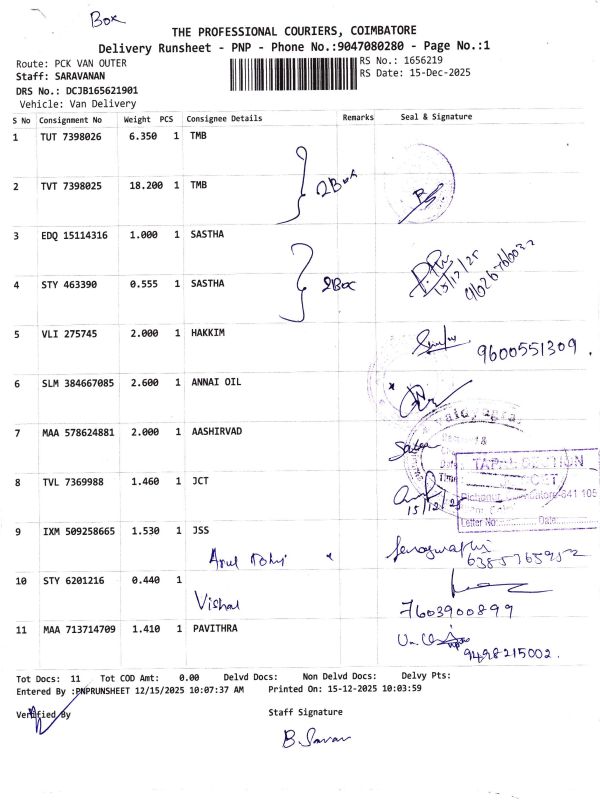 Box
THE PROFESSIONAL COURIERS, COIMBATORE
Delivery Runsheet - PNP - Phone No.:9047080280 - Page No.:1
Route: PCK VAN OUTER
Staff: SARAVANAN
DRS No.: DCJB165621901
Vehicle: Van Delivery
RS No.: 1656219
RS Date: 15-Dec-2025
S No Consignment No Weight PCS Consignee Details Remarks Seal & Signature
1 TUT 7398026 6.350 1 TMB
2 TVT 7398025 18.200 1 TMB
2Box
3 EDQ 15114316 1.000 1 SASTHA
4 STY 463390 0.555 1 SASTHA
2Box
15/12/25
5 VLI 275745 2.000 1 HAKKIM
9600551309.
6 SLM 384667085 2.600 1 ANNAI OIL
7 MAA 578624881 2.000 1 AASHIRVAD
8 TVL 7369988 1.460 1 JCT
15/12/25
TAPAL SECTION
Letter No: Date:
9 IXM 509258665 1.530 1 JSS
10 STY 6201216 0.440 1
Vishal
7603900899
11 MAA 713714709 1.410 1 PAVITHRA
9498215002.
Tot Docs: 11 Tot COD Amt: 0.00 Delvd Docs: Non Delvd Docs: Delvy Pts:
Entered By :PNPRUNSHEET 12/15/2025 10:07:37 AM Printed On: 15-12-2025 10:03:59
Verified By Staff Signature